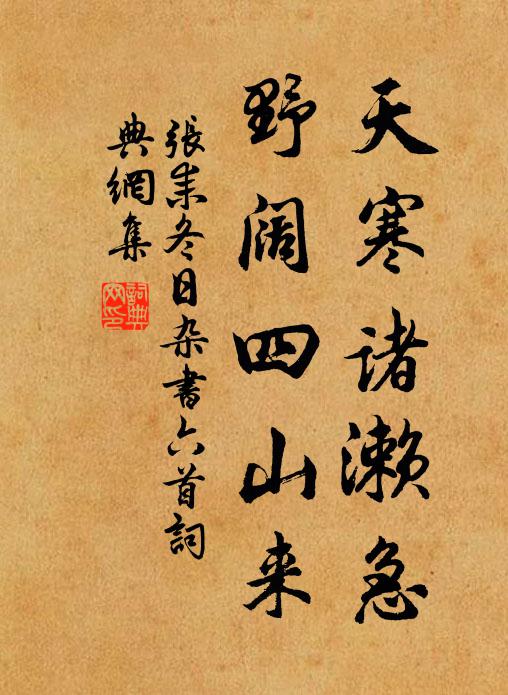 天寒诸濑急
野阔四山来
張耒冬日杂書六首詞
典網集
詞典網印